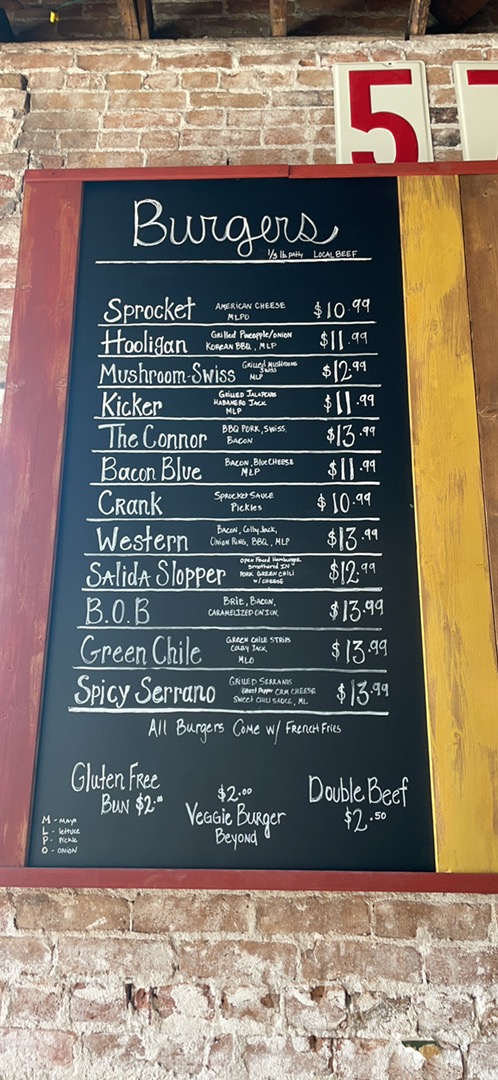 5 7
Burgers
1/3 lb. patty LOCAL BEEF
Sprocket AMERICAN CHEESE $10.99
MLPO
Hooligan Grilled Pineapple/onion $11.99
KOREAN BBQ, MLP
Mushroom-Swiss Grilled Mushrooms $12.99
Swiss
MLP
Kicker GRILLED JALAPENOS $11.99
HABANERO JACK
MLP
The Connor BBQ PORK, SWISS, $13.99
BACON
Bacon Blue BACON, BLUE CHEESE $11.99
MLP
Crank SPROCKET SAUCE $10.99
Pickles
Western BACON, Colby Jack, $13.99
ONION RING, BBQ, MLP
Salida Slopper Open Faced Hamburger $12.99
Smothered IN
PORK GREEN CHILI
W/ CHEESE
B.O.B BRIE, BACON, $13.99
CARAMELIZED ONION
Green Chile GREEN CHILE STRIPS $13.99
COLBY JACK
MLO
Spicy Serrano GRILLED SERRANOS $13.99
Ghost Pepper CRM CHEESE
SWEET CHILI SAUCE, ML
All Burgers Come w/ French Fries
Gluten Free
Bun $2.00
$2.00
Veggie Burger
Beyond
Double Beef
$2.50
M - MAYO
L - lettuce
P - Pickle
O - ONION